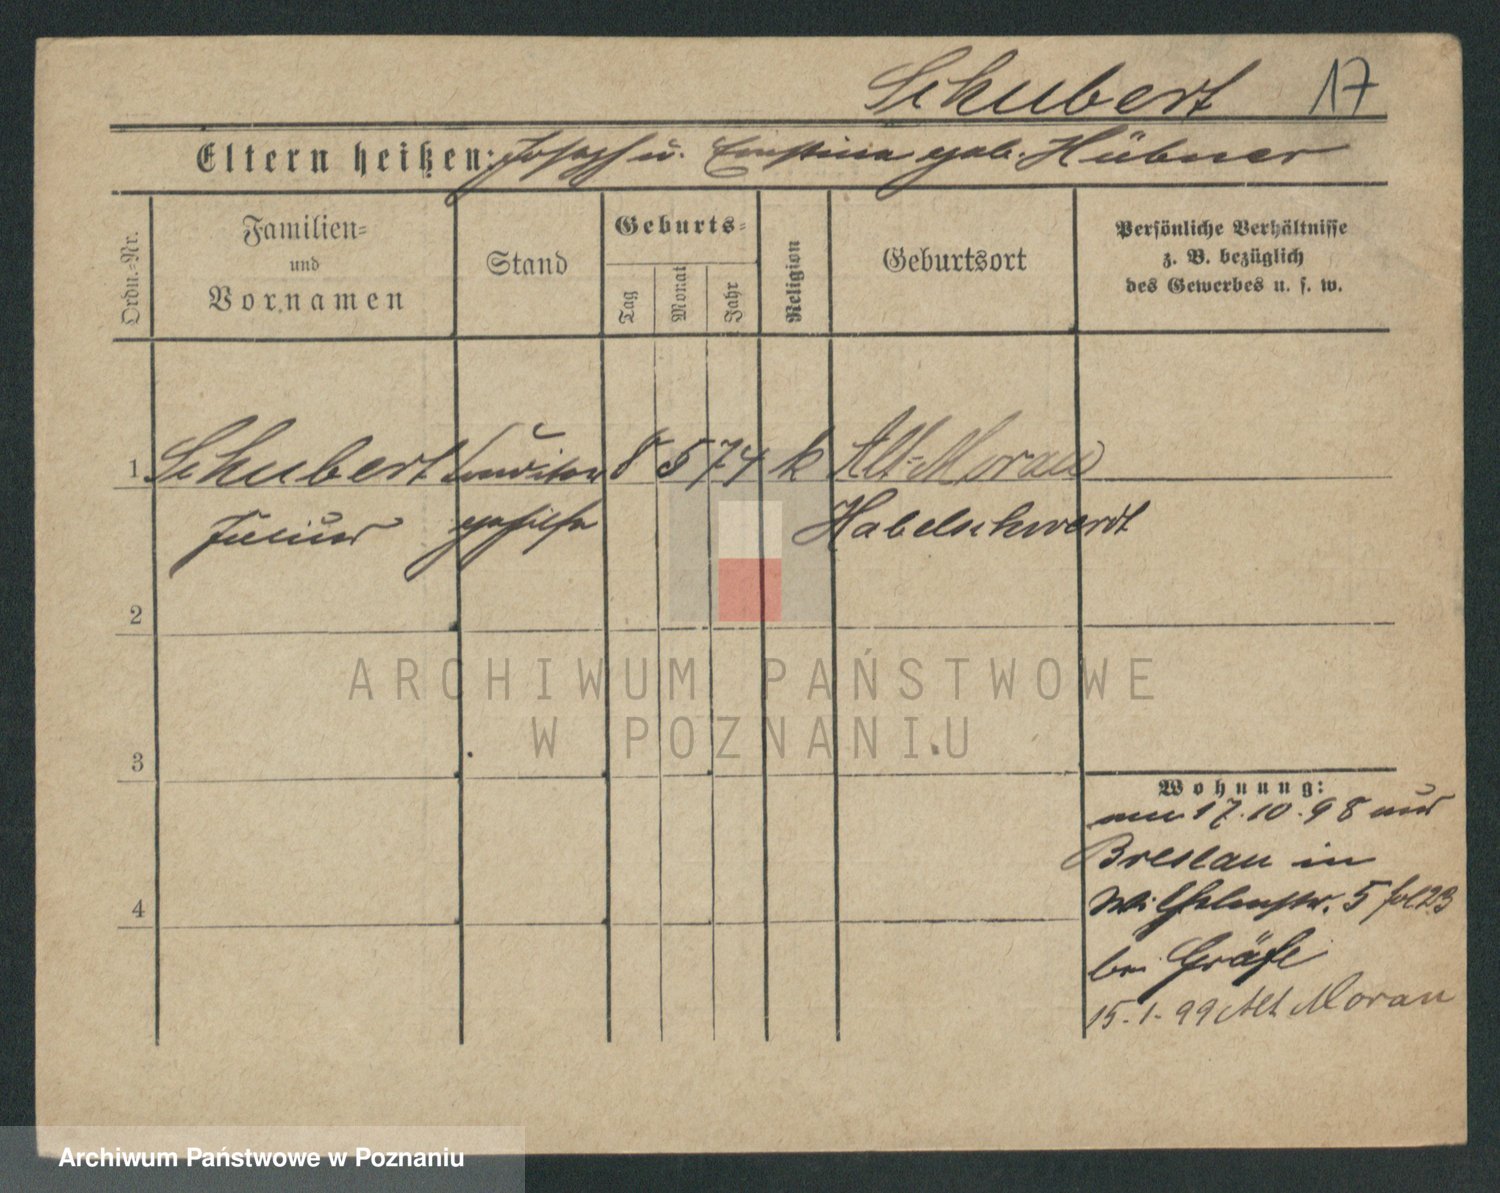 Schubert 17
Eltern heißen: Joseph u. Ernstina geb. Hübner
Ordn.-Nr.
Familien-
und
Vornamen
Stand
Geburts-
Tag
Monat
Jahr
Religion
Geburtsort
Persönliche Verhältnisse
z. B. bezüglich
des Gewerbes u. s. w.
1 Schubert Conditor 8 5 74 k Alt-Morau
Julius gehilfe Habelschwerdt
2
ARCHIWUM PAŃSTWOWE
W POZNANIU
3
Wohnung:
am 17.10.98 aus
Breslau in
Wilhelmstr. 5 fol 23
bei Gräfe
15.1.99 Alt Morau
4
Archiwum Państwowe w Poznaniu